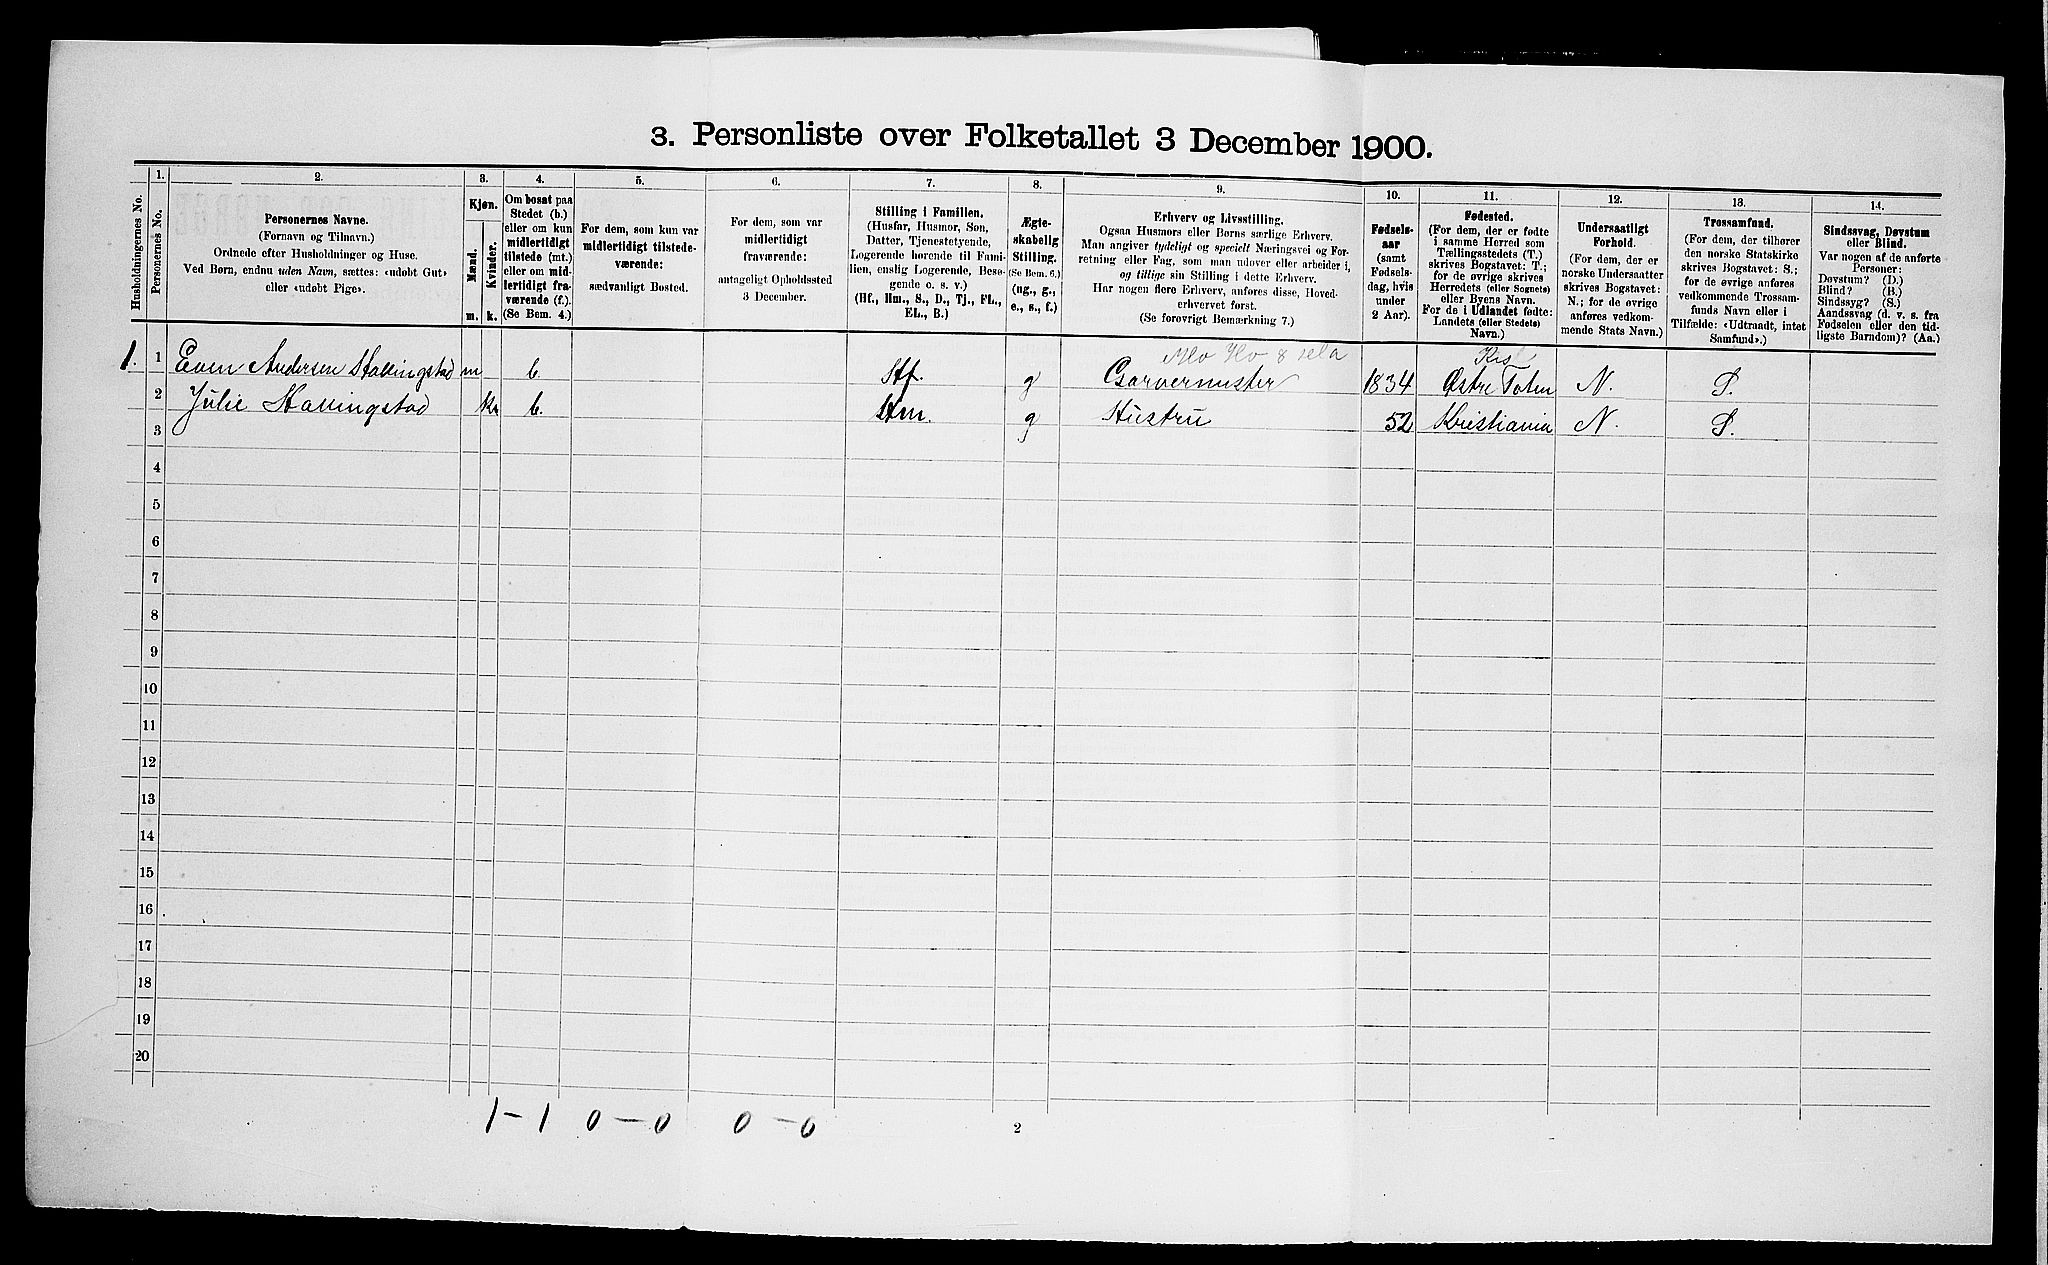 3. Personliste over Folketallet 3 December 1900.
Husholdningernes No.
1.
Personernes No.
2.
Personernes Navne.
(Fornavn og Tilnavn.)
Ordnede efter Husholdninger og Huse.
Ved Børn, endnu uden Navn, sættes: «udøbt Gut»
eller «udøbt Pige».
3.
Kjøn.
Mænd.
Kvinder.
m. k.
4.
Om bosat paa
Stedet (b.)
eller om kun
midlertidigt
tilstede (mt.)
eller om mid-
lertidigt fra-
værende (f.).
(Se Bem. 4.)
5.
For dem, som kun var
midlertidigt tilstede-
værende:
sædvanligt Bosted.
6.
For dem, som var
midlertidigt
fraværende:
antageligt Opholdssted
3 December.
7.
Stilling i Familien.
(Husfar, Husmor, Søn,
Datter, Tjenestetyende,
Logerende hørende til Fami-
lien, enslig Logerende, Besø-
gende o. s. v.)
(Hf., Hm., S., D., Tj., FL.,
EL., B.)
8.
Ægte-
skabelig
Stilling.
(Se Bem. 6.)
(ug., g.,
e., s., f.)
9.
Erhverv og Livsstilling.
Ogsaa Husmors eller Børns særlige Erhverv.
Man angiver tydeligt og specielt Næringsvei og For-
retning eller Fag, som man udøver eller arbeider i,
og tillige sin Stilling i dette Erhverv.
Har nogen flere Erhverv, anføres disse, Hoved-
erhvervet først.
(Se forøvrigt Bemærkning 7.)
10.
Fødsels-
aar
(samt
Fødsels-
dag, hvis
under
2 Aar).
11.
Fødested.
(For dem, der er fødte
i samme Herred som
Tællingsstedets (T.)
skrives Bogstavet: T.;
for de øvrige skrives
Herredets (eller Sognets)
eller Byens Navn.
For de i Udlandet fødte:
Landets (eller Stedets)
Navn.)
12.
Undersaatligt
Forhold.
(For dem, der er
norske Undersaatter
skrives Bogstavet:
N.; for de øvrige
anføres vedkom-
mende Stats Navn.)
13.
Trossamfund.
(For dem, der tilhører
den norske Statskirke
skrives Bogstavet: S.;
for de øvrige anføres
vedkommende Trossam-
funds Navn eller i
Tilfælde: «Udtraadt, intet
Samfund».)
14.
Sindssvag, Døvstum
eller Blind.
Var nogen af de anførte
Personer:
Døvstum? (D.)
Blind? (B.)
Sindssyg? (S.)
Aandssvag (d. v. s. fra
Fødselen eller den tid-
ligste Barndom)? (Aa.)
1. 1 Even Andersen Hallingstad m b. Hf. g Garvermester 1834 Østre Toten N. S.
2 Julie Hallingstad k b. Hm. g Hustru 52 Kristiania N. S.
3
4
5
6
7
8
9
10
11
12
13
14
15
16
17
18
19
20
1 – 1 0 – 0 0 – 0
2